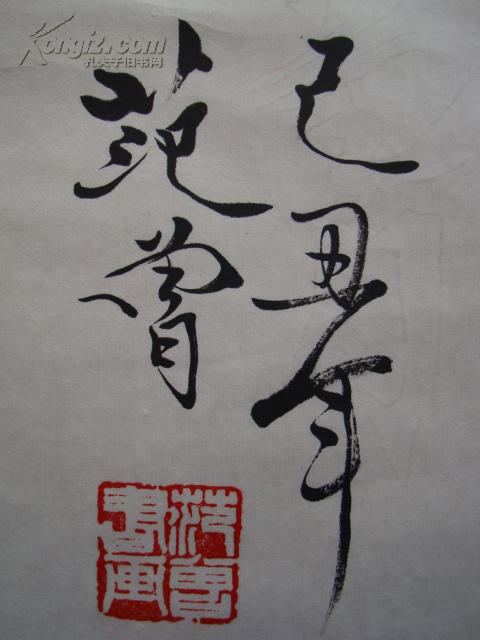 Kongfz.com
孔夫子旧书网
己丑年
范曾
范曾
書画